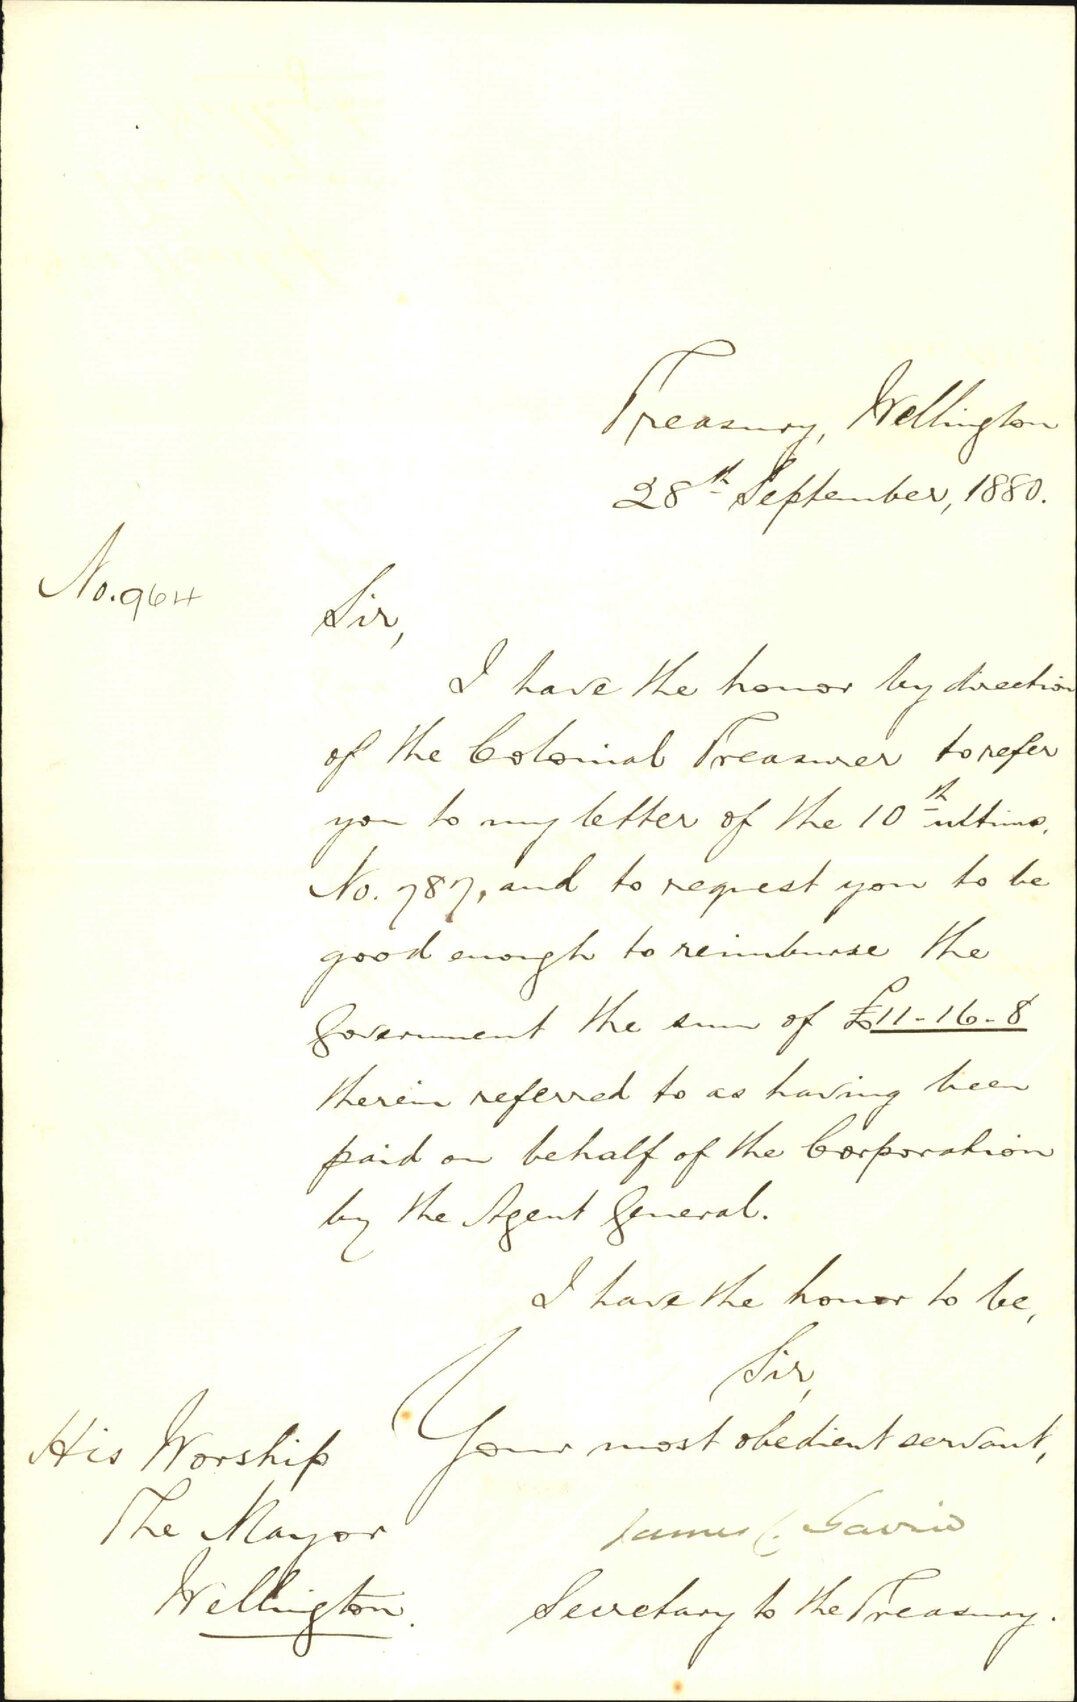 Treasury, Wellington
28th September, 1880.
No. 964
Sir,
I have the honor by direction
of the Colonial Treasurer to refer
you to my letter of the 10th ultimo,
No. 787, and to request you to be
good enough to reimburse the
Government the sum of £11-16-8
therein referred to as having been
paid on behalf of the Corporation
by the Agent General.
I have the honor to be,
Sir,
Your most obedient servant,
James C. Gavin
Secretary to the Treasury.
His Worship
The Mayor
Wellington.